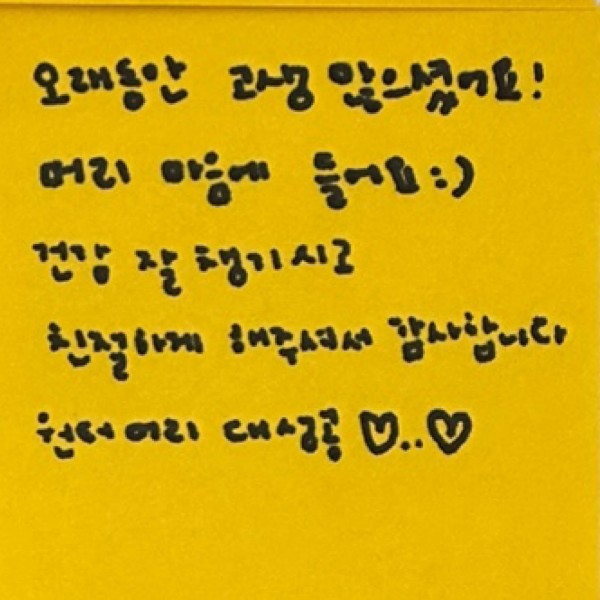 오래동안 고생 많으셨어요!
머리 마음에 들어요:)
건강 잘 챙기시고
친절하게 해주셔서 감사합니다
윈터머리 대성공 ♡..♡